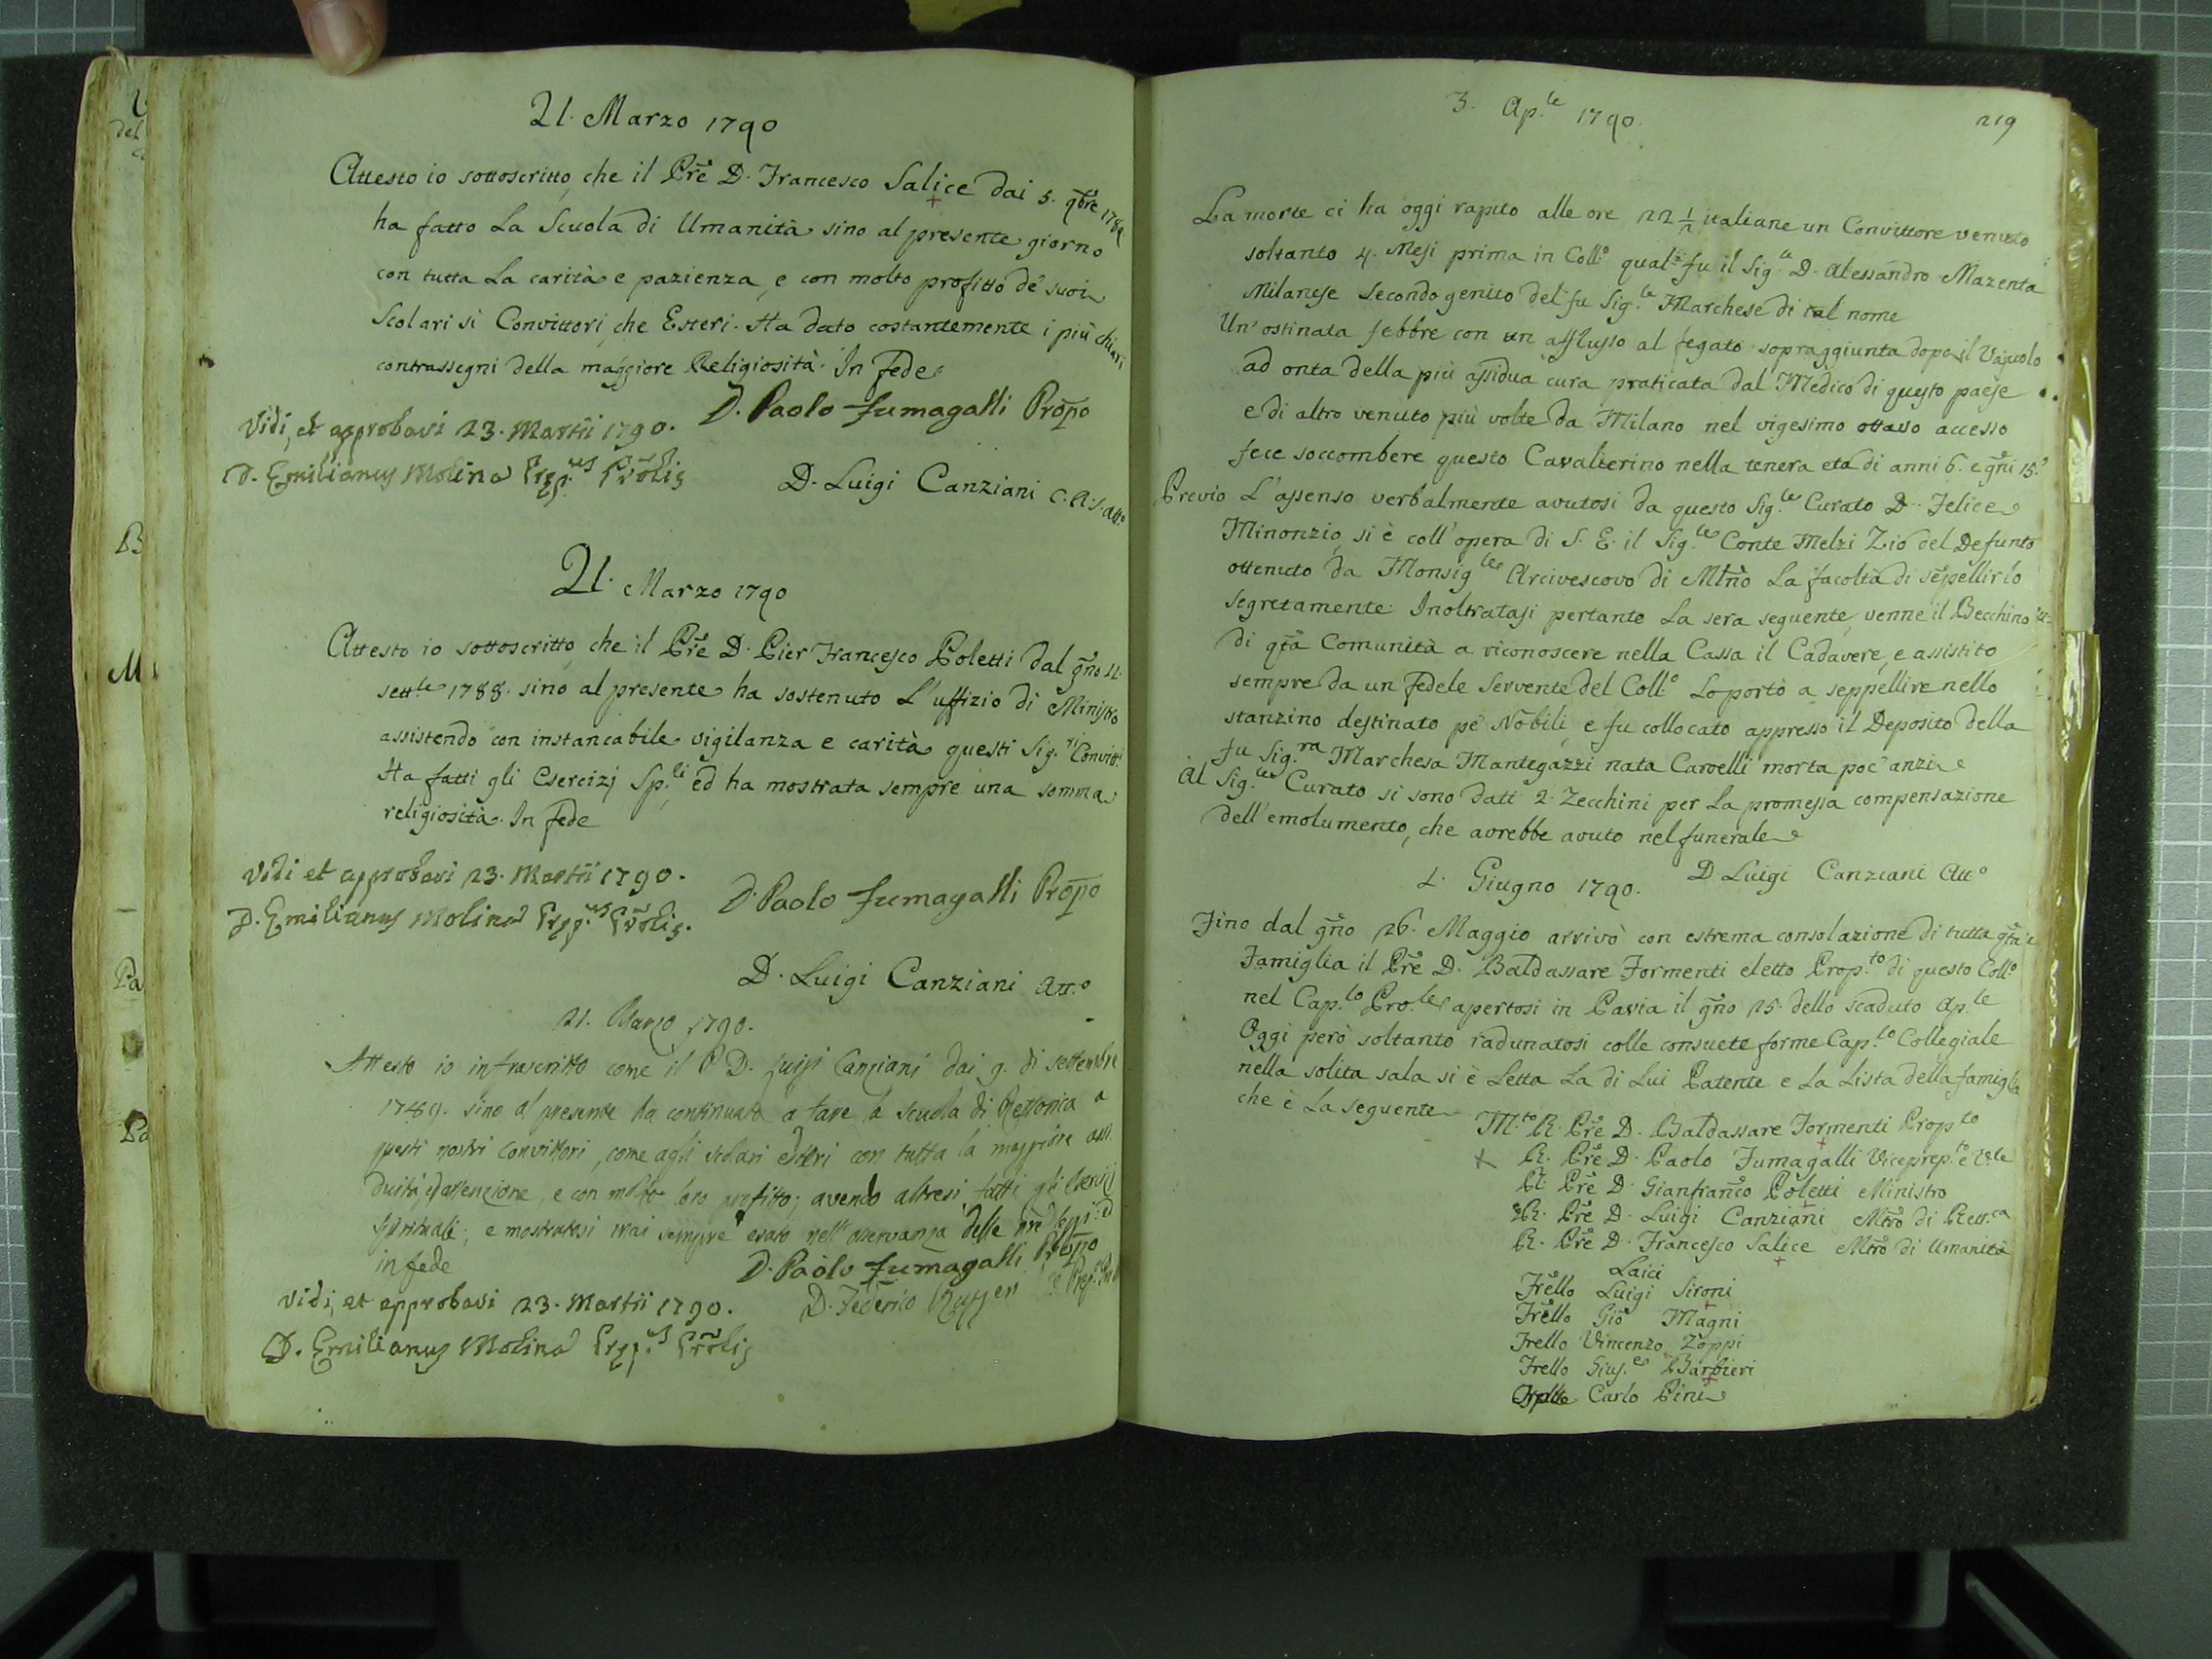 21. Marzo 1790
Attesto io sottoscritto, che il Prẽ D. Francesco Salice dai 5. 9bre 1789
ha fatto La Scuola di Umanità sino al presente giorno
con tutta La carità e pazienza, e con molto profitto de' suoi
Scolari sì Convittori, che Esteri. Ha dato costantemente i più chiari
contrassegni della maggiore Religiosità. In fede
D. Paolo Fumagalli Prop̃o
Vidi, et approbavi 23. Martii 1790.
D. Emilianus Molina Prẹp.us Prõlis
D. Luigi Canziani C.R.S. Att.o
21. Marzo 1790
Attesto io sottoscritto, che il Prẽ D. Pier Francesco Poletti dal gñō 11.
sett.le 1788. sino al presente ha sostenuto L'uffizio di Ministro
assistendo con instancabile vigilanza e carità questi Sig.ri Convitt.
Ha fatti gli Esercizj Sp.li ed ha mostrata sempre una somma
religiosità. In fede
Vidi et approbavi 23. Martii 1790.
D. Paolo Fumagalli Prop̃o
D. Emilianus Molina Prẹp.us Prõlis.
D. Luigi Canziani Att.o
21. Marzo 1790.
Attesto io infrascritto come il P. D. Luigi Canziani dai 9. di settembre
1789. sino al presente ha continuato a fare la scuola di Rettorica a
questi nostri Convittori, come agli scolari esteri con tutta la maggiore assi
duità, ed attenzione, e con molto loro profitto; avendo altresì fatti gli Esercizj
spirituali; e mostratosi mai sempre esato nell'osservanza delle
in fede
D. Paolo Fumagalli Prop̃o
Vidi, et approbavi 23. Martii 1790.
D. Federico
D. Emilianus Molina Prẹp.us Prõlis
3. Ap.le 1790.
219
La morte ci ha oggi rapito alle ore 22 ½ italiane un Convittore venuto
soltanto 4. Mesi prima in Coll.o qual fu il Sig.le D. Alessandro Mazenta
Milanese Secondogenito del fu Sig.le Marchese di tal nome
Un'ostinata febbre con un afflusso al fegato sopraggiunta dopo il Vajuolo
ad onta della più assidua cura praticata dal Medico di questo paese
e di altro venuto più volte da Milano nel vigesimo ottavo accesso
fece soccombere questo Cavalierino nella tenera età di anni 6. e gñi 15.
Previo L'assenso verbalmente avutosi da questo Sig.le Curato D. Felice
Minonzio, si è coll'opera di S. E. il Sig.le Conte Melzi Zio del Defunto
ottenuto da Monsig.le Arcivescovo di Mlño La facoltà di seppellirlo
segretamente. Inoltratasi pertanto La sera seguente, venne il Becchino
di qtã Comunità a riconoscere nella Cassa il Cadavere, e assistito
sempre da un fedele Servente del Coll.o Lo portò a seppellire nello
stanzino destinato pe' Nobili, e fu collocato appresso il Deposito della
fu Sig.ra Marchesa Mantegazzi nata Carvelli morta poc'anzi
Al Sig.le Curato si sono dati 2. Zecchini per La promessa compensazione
dell'emolumento, che avrebbe avuto nel funerale
D. Luigi Canziani Att.o
1. Giugno 1790.
Fino dal gñō 26. Maggio arrivò con estrema consolazione di tutta qtã
Famiglia il Prẽ D. Baldassare Formenti eletto Prop.to di questo Coll.o
nel Cap.lo Pro.le apertosi in Pavia il gñō 25. dello scaduto Ap.le
Oggi però soltanto radunatosi colle consuete forme Cap.lo Collegiale
nella solita sala si è Letta La di Lui Patente e La Lista della famigla
che è La seguente
M.to R. Prẽ D. Baldassare Formenti Prop.to
+ R. Prẽ D. Paolo Fumagalli Viceprep.to e V.le
R. Prẽ D. Gianfranc̃o Poletti Ministro
R. Prẽ D. Luigi Canziani Mtrõ di Rett.ca
R. Prẽ D. Francesco Salice Mtrõ di Umanità
Laici
Frello Luigi Sironi
Frello Gio Magni
Frello Vincenzo Zoppi
Frello Gius.e Barbieri
Carlo Pini